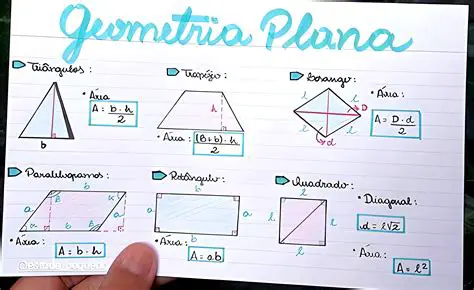 Geometria Plana
Triângulos:
• Área
A = b · h / 2
b
Trapézio:
h
• Área: (B+b) · h / 2
Losango:
l
l
l
l
D
d
• Área:
A = D · d / 2
Paralelogramos:
b
a
a
b
• Área:
A = b · h
Retângulo:
b
a
a
b
• Área:
A = a.b
Quadrado:
l
l
• Diagonal:
d = l√2
• Área:
A = l²